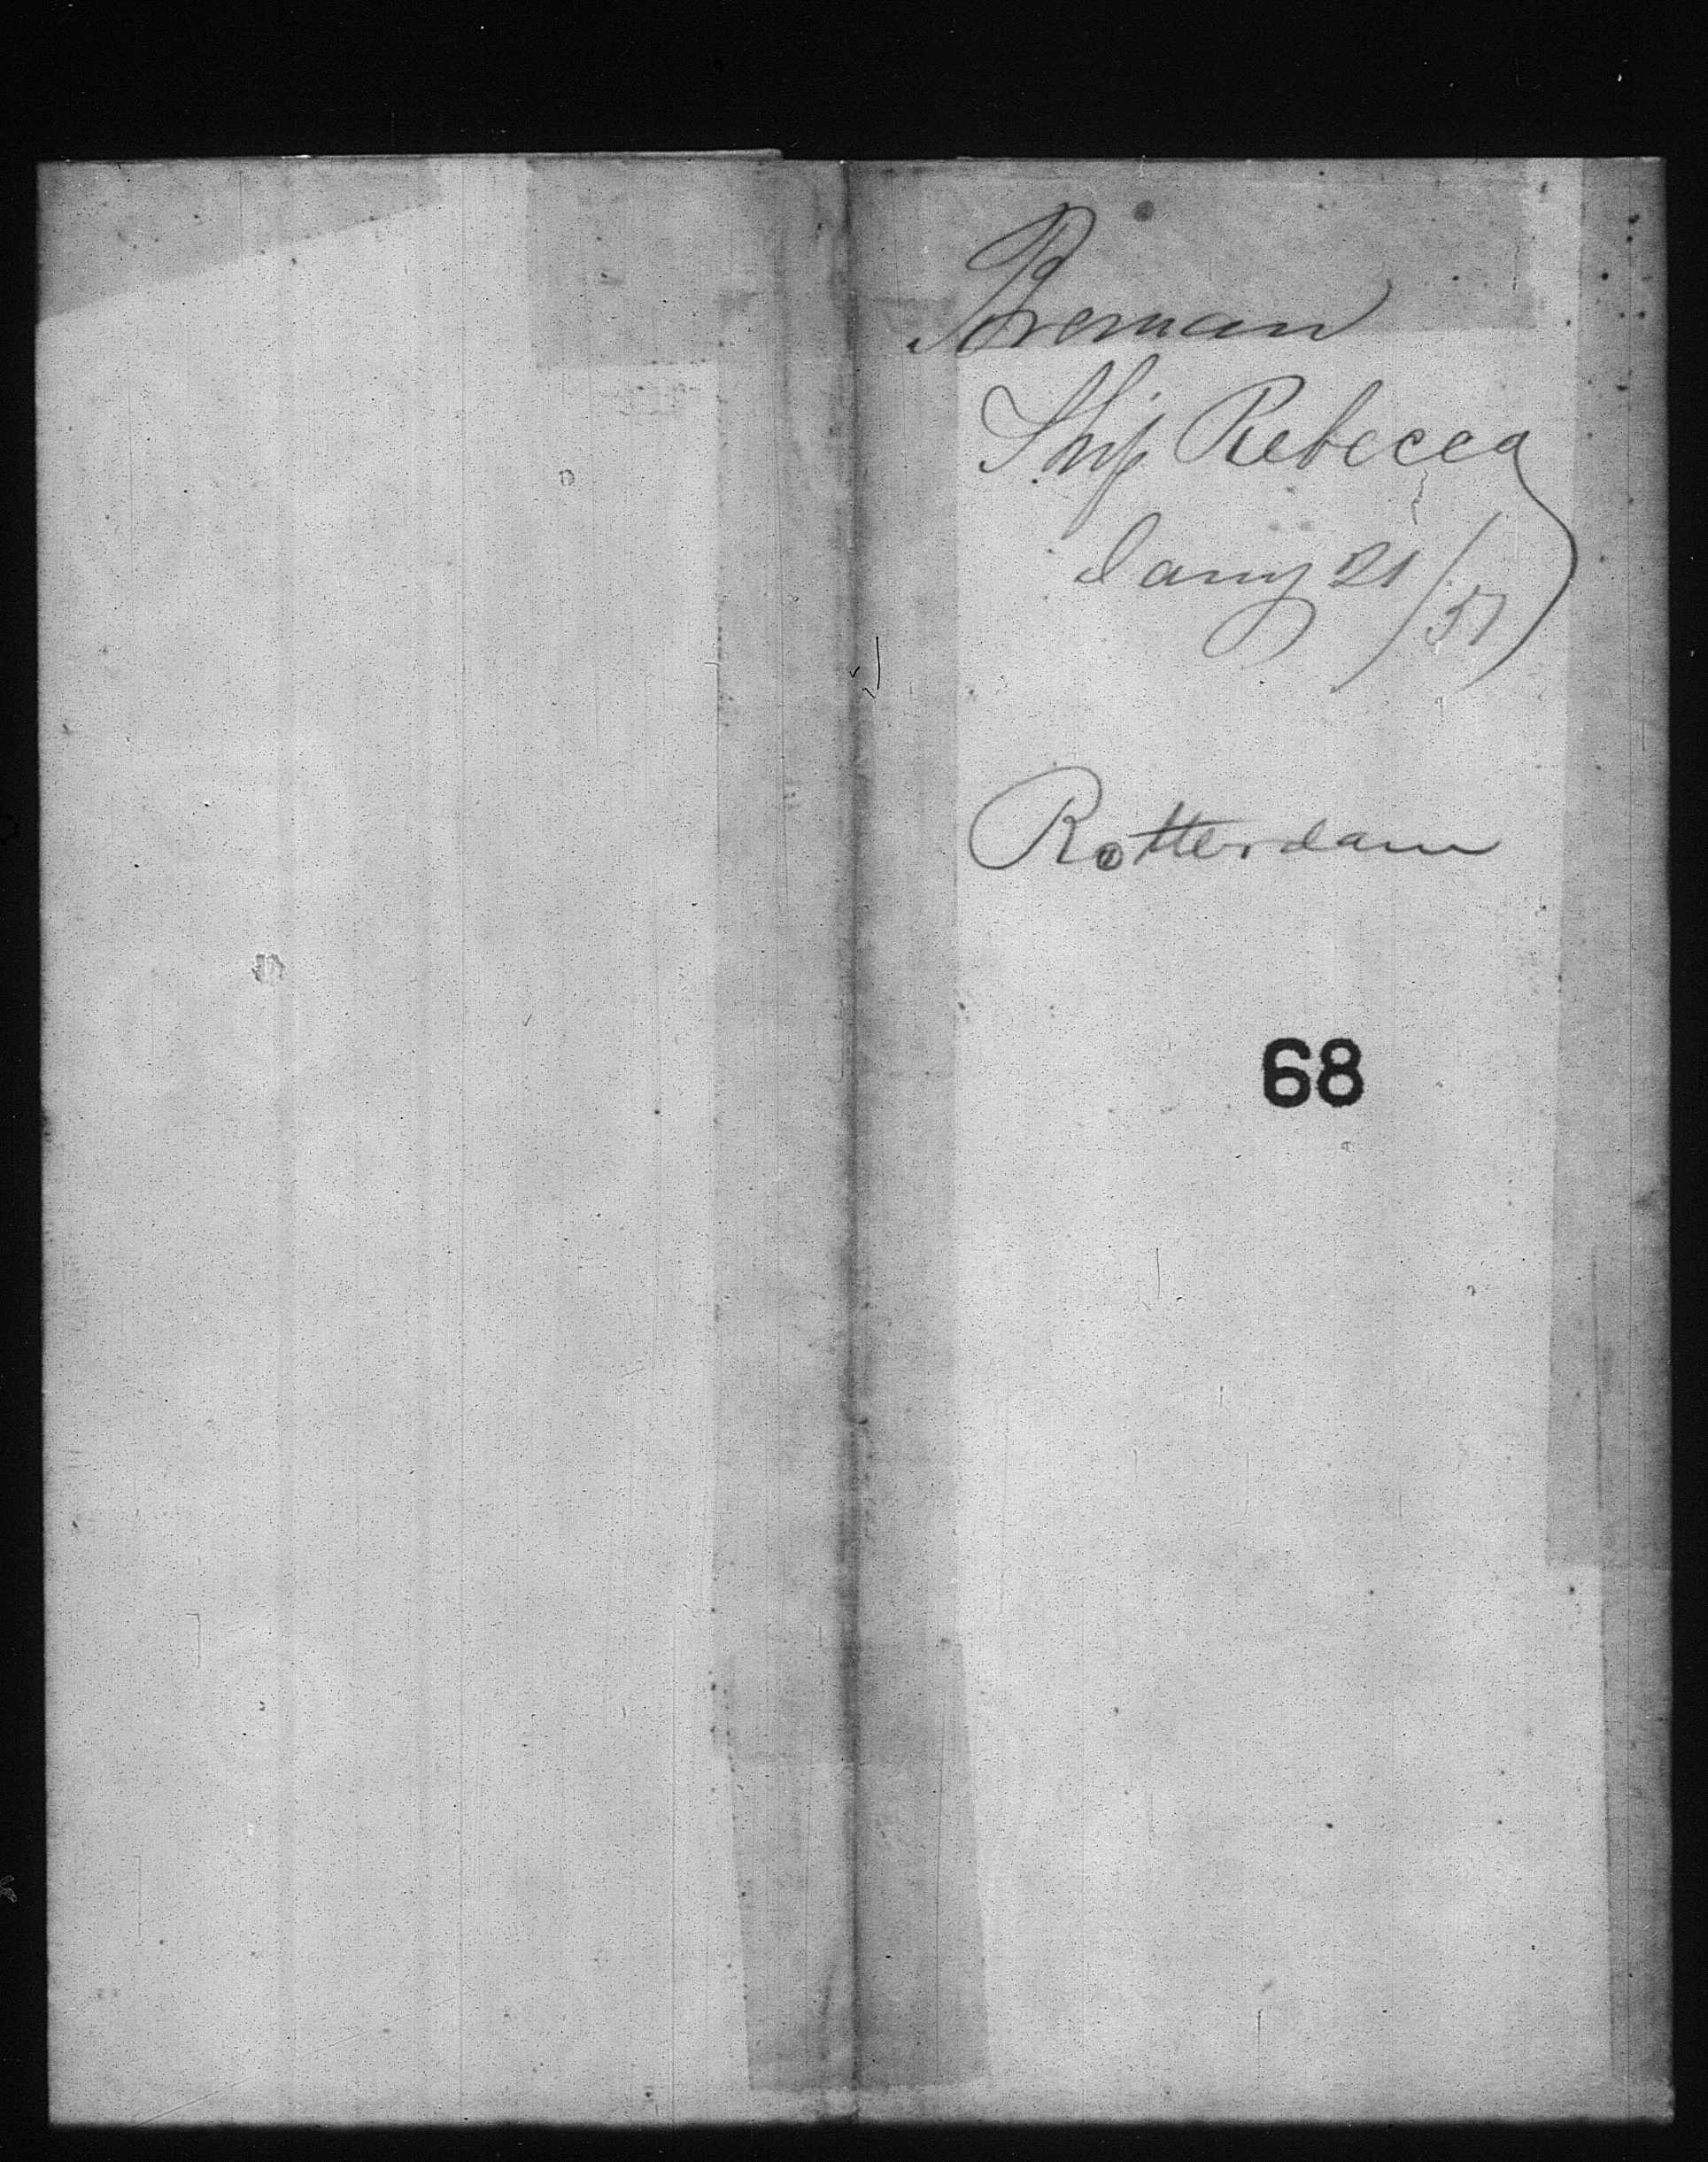 Breman
Ship Rebecca
Jany 21/51
Rotterdam
68